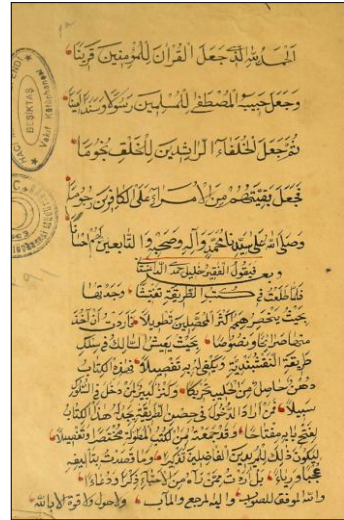 الحمد لله الذي جعل القرآن للمؤمنين قرينا
وجعل حبيبه المصطفى للمسلمين رسولا وسندا امينا
ثم جعل الخلفاء الراشدين للخلق نجوما
فجعل بقيتهم من الامراء على الكافرين رجوما
وصلى الله على سيدنا محمد وآله وصحبه والتابعين لهم احسانا
وبعد فيقول الفقير خليل حمد
فلما طلعت في كتب الطريقة تفتيشا وجدتها
بحيث ينحصر هم اكثر المحصلين تطويلا فاردت ان آخذ
منها بحيث يعيش السالك في سلك
طريقة النقشبندية ويكفى له تفصيلا فهذه الكتاب
دهن حاصل من الحليب تحريكا
سبيلا فمن اراد الدخول في حصن الطريقة جعل هذا الكتاب
لفتح بابه مفتاحا وقد جمعته من كتب المطولة مختصرا وتفصيلا
ليكون ذلك للمريدين الفاضلين تذكيرا وما قصدت بتأليفه
عجبا ورياء بل اردت ممن رآه من الاحباء ذكرا ودعاء
والله الموفق للصواب واليه المرجع والمآب ولا حول ولا قوة الا بالله
BEŞİKTAŞ